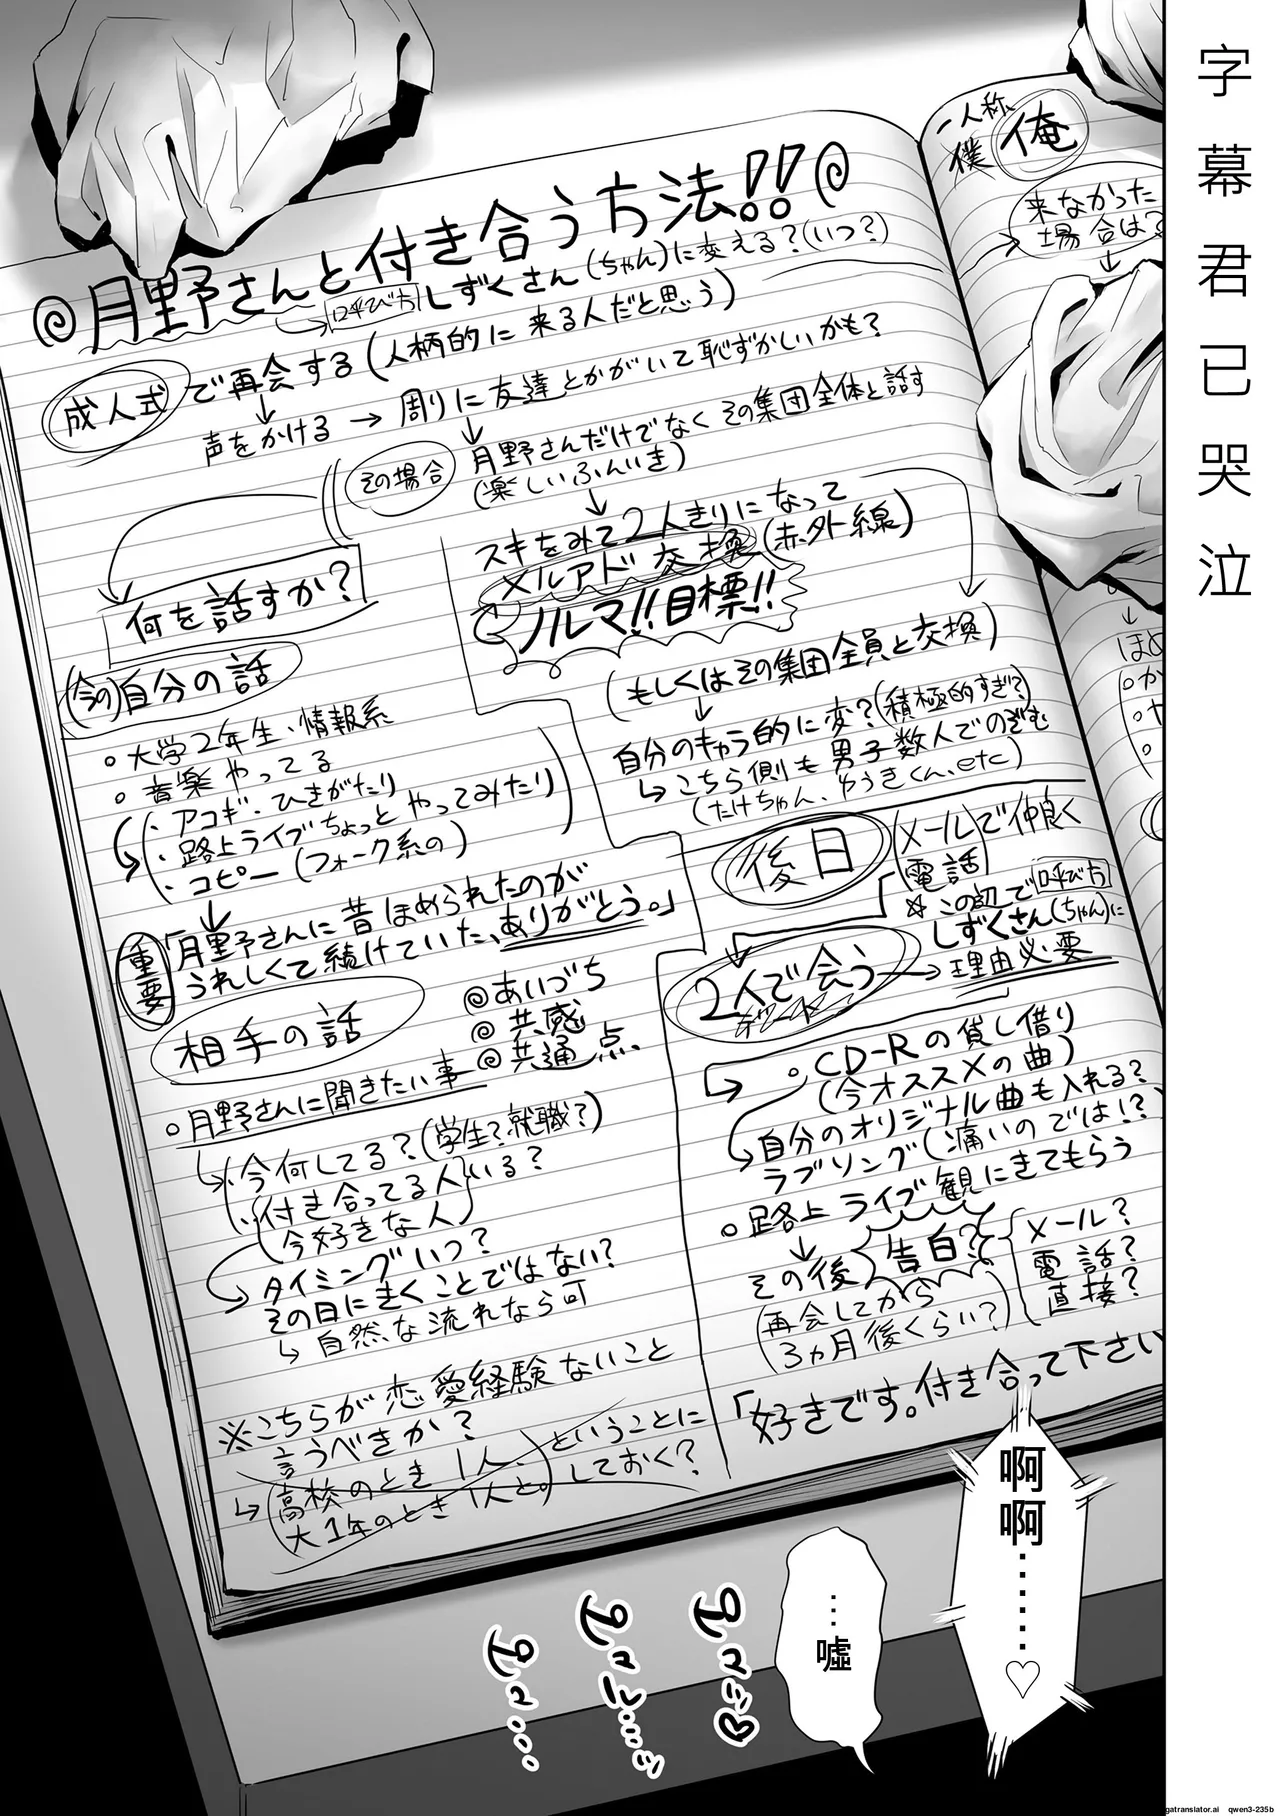 字幕君已哭泣
一人称
僕 俺
来なかった
場合は?
◎月野さんと付き合う方法!!◎
呼び方 しずくさん(ちゃん)に変える?(いつ?)
成人式で再会する(人柄的に来る人だと思う)
声をかける → 周りに友達とかがいて恥ずかしいかも?
その場合
月野さんだけでなくその集団全体と話す
(楽しいふんいき)
スキをみて2人きりになって
メルアド交換(赤外線)
ノルマ!!目標!!
(もしくはその集団全員と交換)
自分のキャラ的に変?(積極的すぎ?)
こちら側も男子数人でのぞむ
(たけちゃん、ゆうきくん、etc)
何を話すか?
(今の)自分の話
○大学2年生・情報系
○音楽やってる
・アコギ・ひきがたり
・路上ライブちょっとやってみたり
・コピー(フォーク系の)
重要
「月野さんに昔ほめられたのが
うれしくて続けていた、ありがとう。」
相手の話
◎あいづち
◎共感
◎共通点
○月野さんに聞きたい事
・今何してる?(学生?就職?)
・付き合ってる人いる?
今好きな人
タイミングいつ?
その日にきくことではない?
自然な流れなら可
※こちらが恋愛経験ないこと
言うべきか?
高校のとき1人、
大1年のとき1人と。
ということに
しておく?
後日
メール
電話
で仲良く
☆この辺で呼び方
しずくさん(ちゃん)に
2人で会う
デート
理由必要
○CD-Rの貸し借り
(今オススメの曲)
自分のオリジナル曲も入れる?
ラブソング(痛いのでは!?)
○路上ライブ観にきてもらう
その後 告白?
(再会してから
3ヵ月後くらい?)
メール?
電話?
直接?
「好きです。付き合って下さい
ほめ
啊啊……♡
…噓